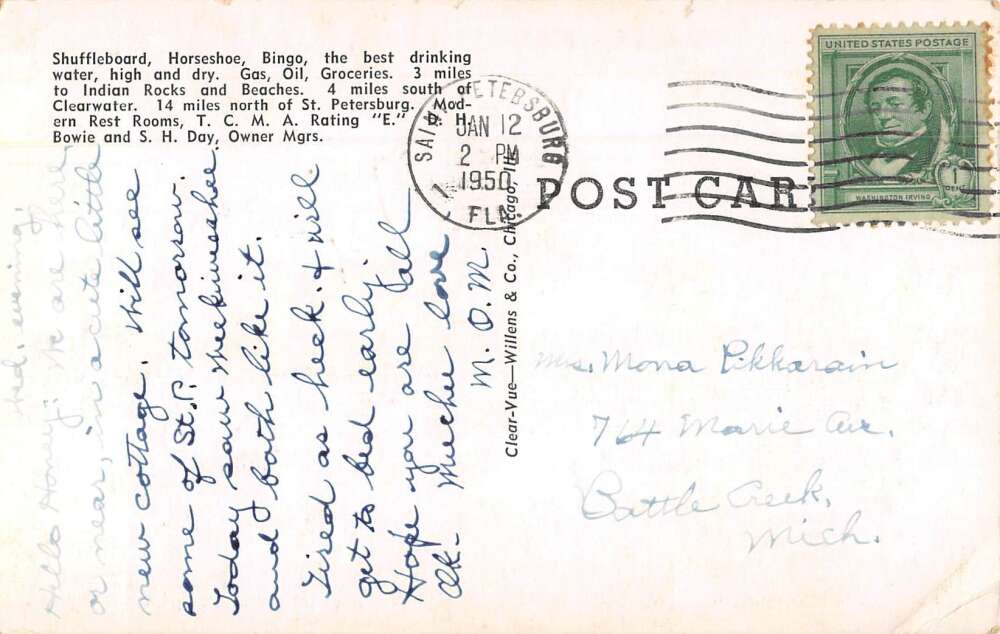 Shuffleboard, Horseshoe, Bingo, the best drinking
water, high and dry. Gas, Oil, Groceries. 3 miles
to Indian Rocks and Beaches. 4 miles south of
Clearwater. 14 miles north of St. Petersburg. Mod-
ern Rest Rooms, T. C. M. A. Rating "E." H.
Bowie and S. H. Day, Owner Mgrs.
SAINT PETERSBURG
JAN 12
2 PM
1950
FLA.
1
UNITED STATES POSTAGE
1
CENT
WASHINGTON IRVING
POST CAR
Clear-Vue—Willens & Co., Chicago, Ill.
Wed. evening,
Hello Honey: We are here
or near, in a cute little
new cottage. Will see
some of St. P. tomorrow.
Today saw Weekiwashee
and both like it.
Tired as heck & will
get to bed early
Hope you are all
Ok. Muchee love
M. O. M.
Mrs. Mona Pikkarain
714 Marie Ave.
Battle Creek,
Mich.